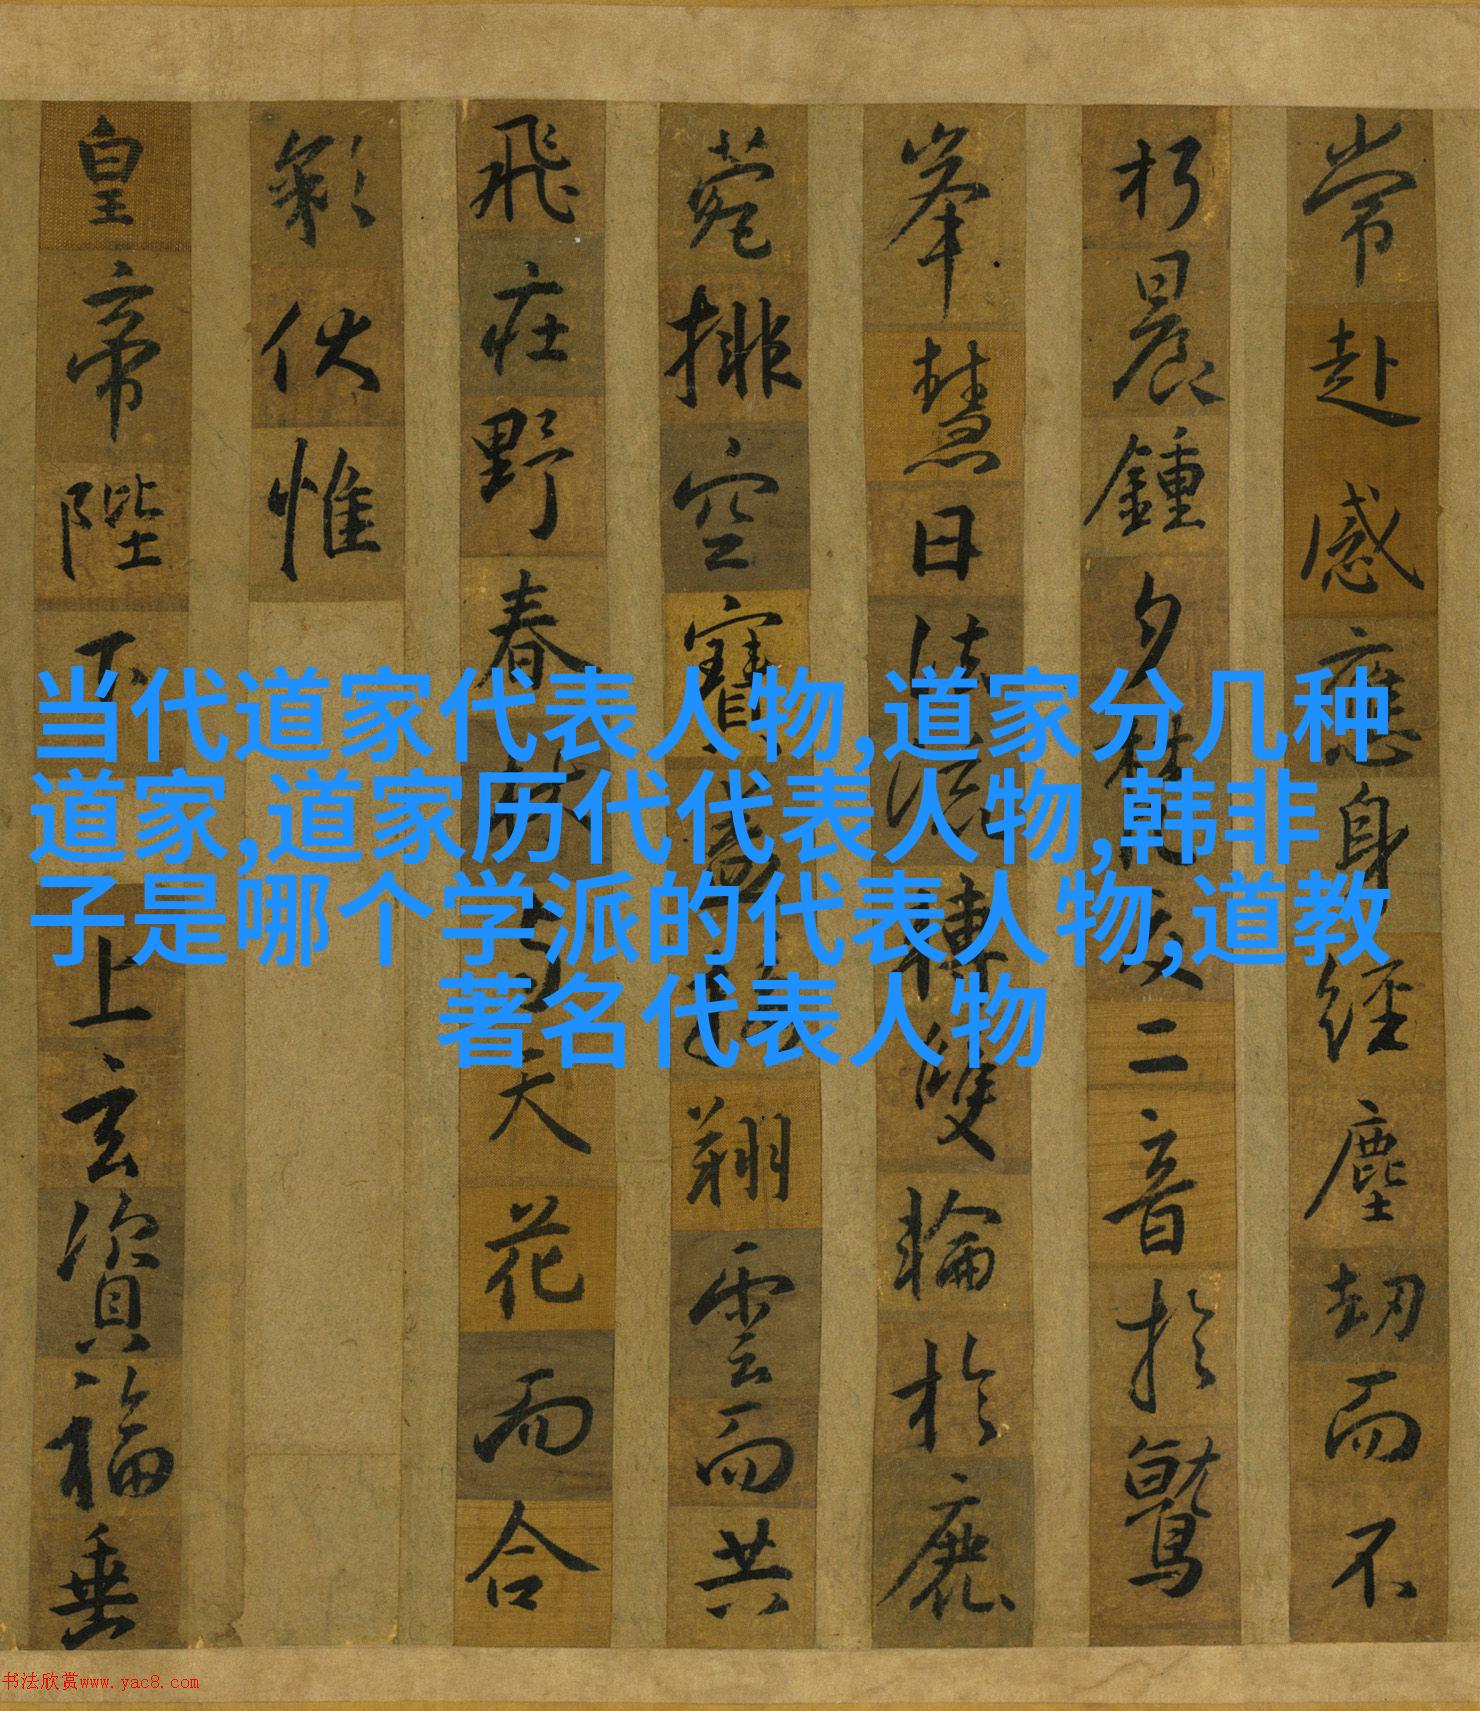 常赴感應身經塵劫而不
朽晨鍾夕梵交二音於鷲
峯慧日法流轉雙輪於鹿
菀排空寶蓋接翔雲而共
飛莊野春林与天花而合
彩伏惟
皇帝陛下上玄資福垂
当代道家代表人物,道家分几种
道家,道家历代代表人物,韩非
子是哪个学派的代表人物,道教
著名代表人物
书法欣赏www.yac8.com